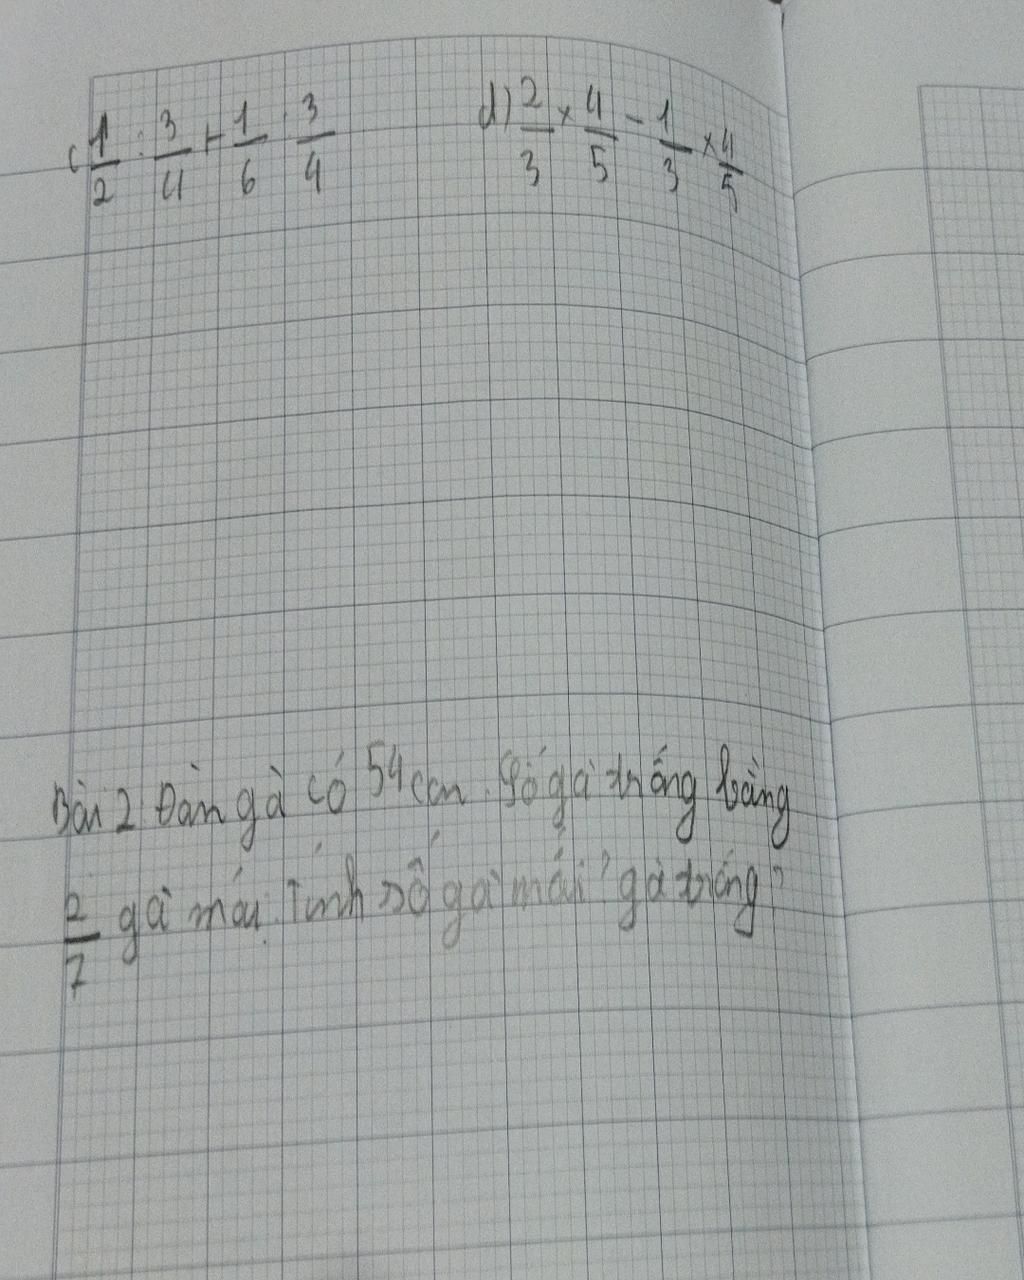 c 1/2 : 3/4 + 1/6 : 3/4
d) 2/3 × 4/5 - 1/3 × 4/5
Bài 2 Đàn gà có 54 con. Số gà trống bằng
2/7 gà mái. Tính số gà mái, gà trống?